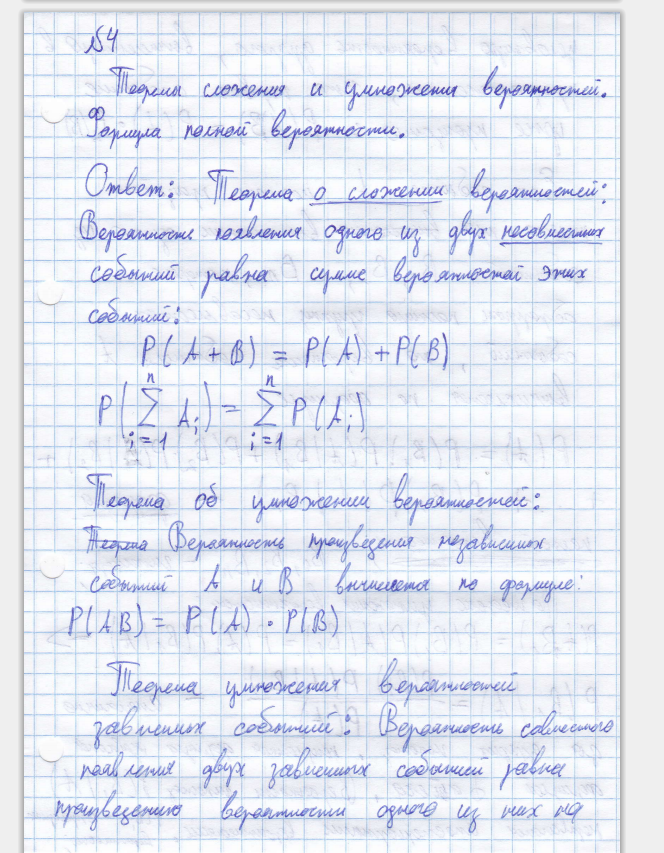 №4
Теоремы сложения и умножения вероятностей.
Формула полной вероятности.
Ответ: Теорема о сложении вероятностей:
Вероятность появления одного из двух несовместных
событий равна сумме вероятностей этих
событий:
P(A+B) = P(A) + P(B)
P(∑_{i=1}^{n} A_i) = ∑_{i=1}^{n} P(A_i)
Теорема об умножении вероятностей:
Теорема Вероятность произведения независимых
событий A и B вычисляется по формуле:
P(AB) = P(A) · P(B)
Теорема умножения вероятностей
зависимых событий: Вероятность совместного
появления двух зависимых событий равна
произведению вероятности одного из них на